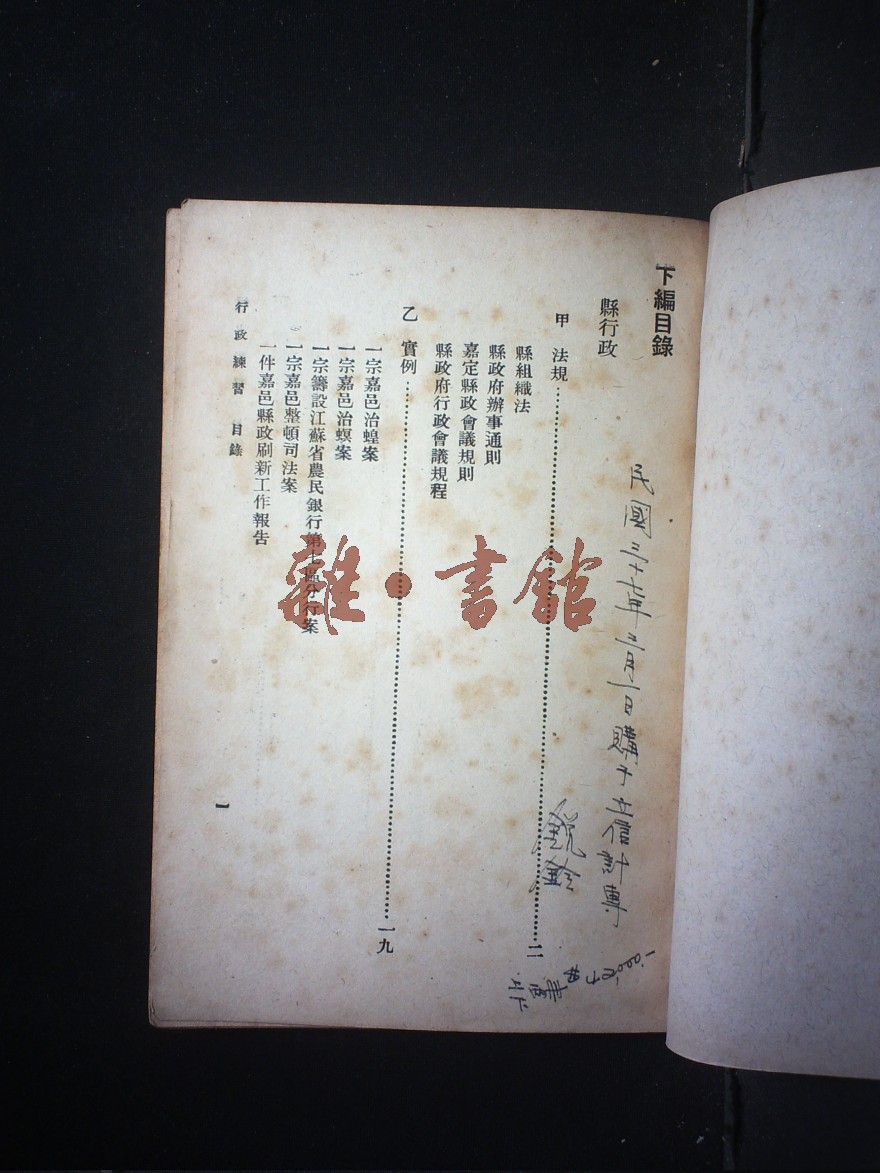 下編目錄
縣行政
甲 法規……二
縣組織法
縣政府辦事通則
嘉定縣政會議規則
縣政府行政會議規程
乙 實例……一九
一宗嘉邑治蝗案
一宗嘉邑治螟案
一宗籌設江蘇省農民銀行第七區分行案
一宗嘉邑整頓司法案
一件嘉邑縣政刷新工作報告
行政練習 目錄
一
民國三十七年三月一日購于立信計專
雜·書館